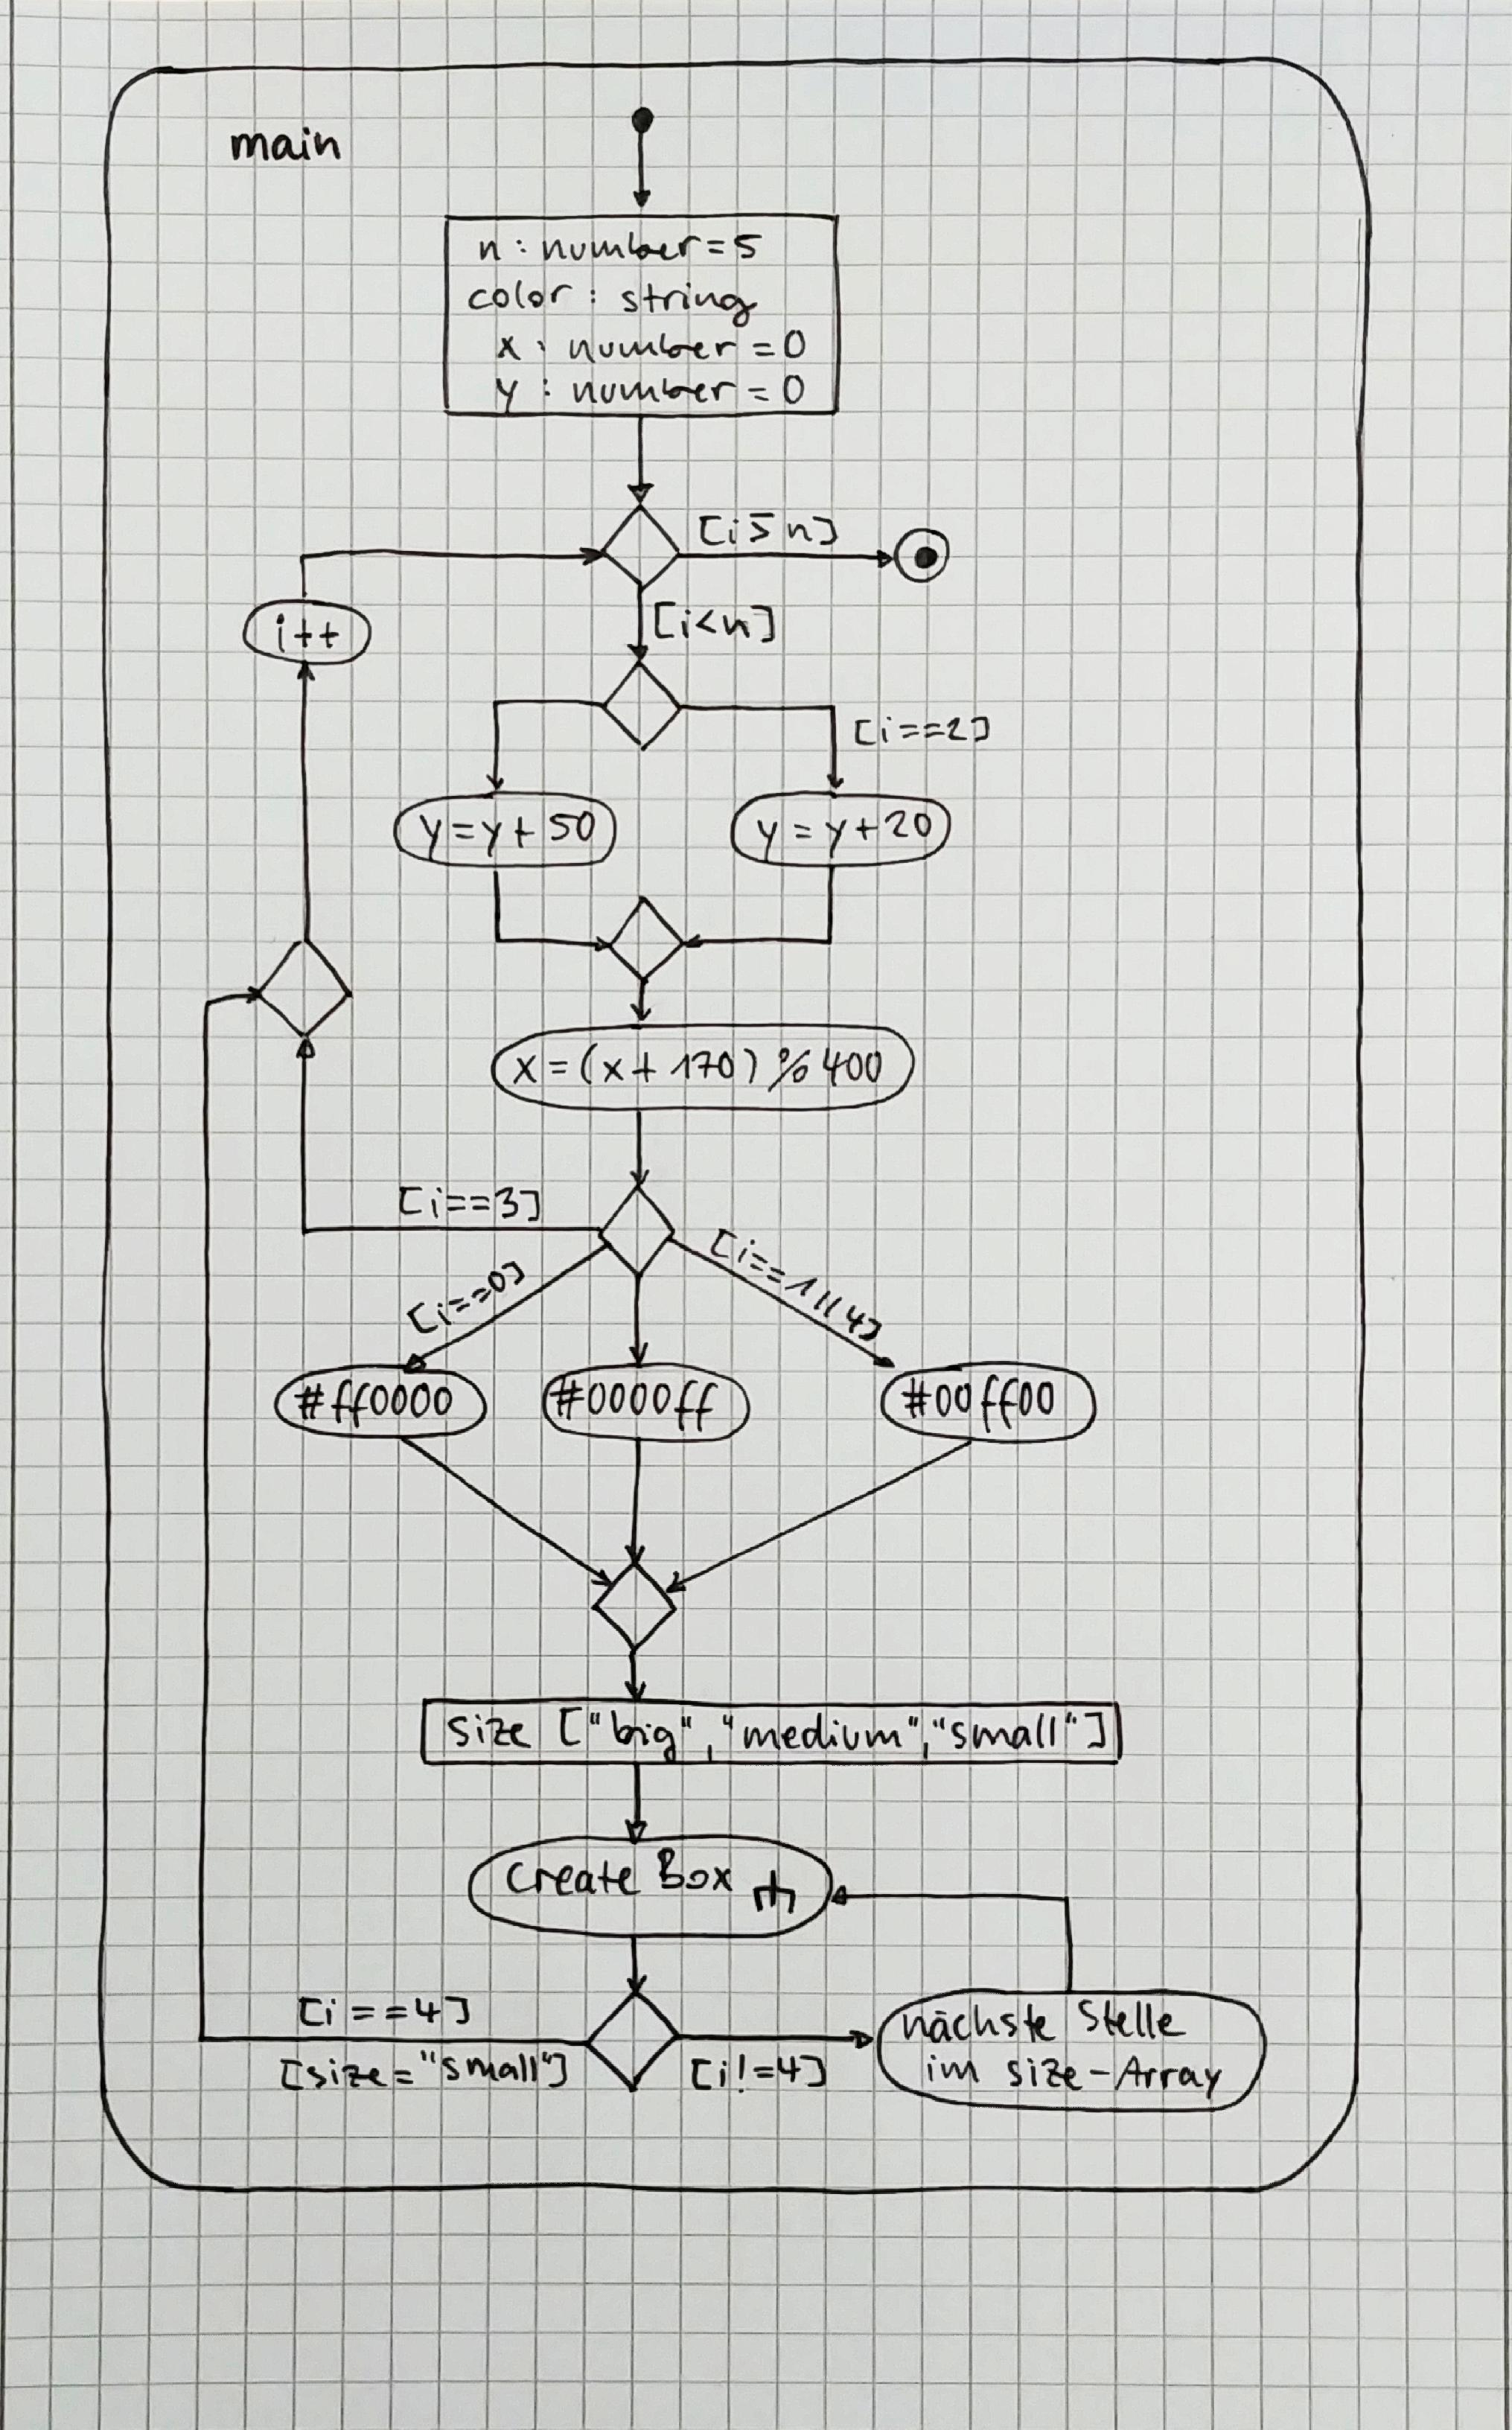 main
n : number = 5
color : string
x : number = 0
y : number = 0
[i ≥ n]
[i<n]
i++
[i==2]
y = y + 50
y = y + 20
x = (x + 170) % 400
[i==3]
[i==0]
[i==1||4]
#ff0000
#0000ff
#00ff00
size ["big", "medium", "small"]
create Box
[i==4]
[size="small"]
[i!=4]
nächste Stelle
im size-Array